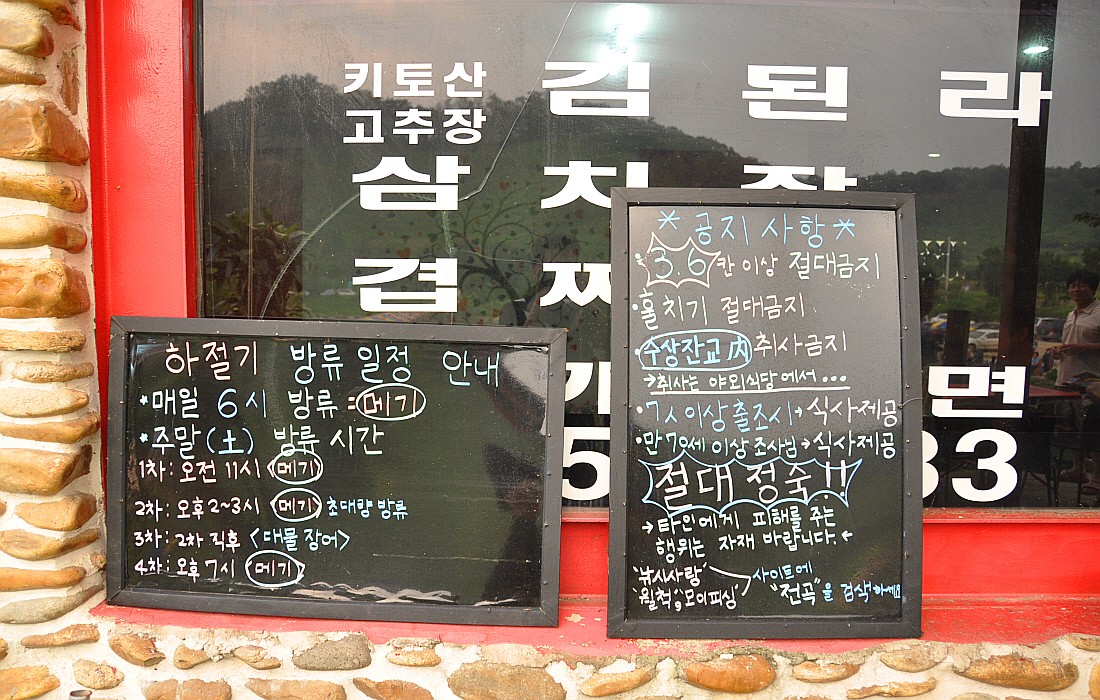 키토산
고추장
삼
겹
김
치
찌
된
장
라
면
5
33
하절기 방류 일정 안내
*매일 6시 방류 = 메기
*주말(土) 방류 시간
1차: 오전 11시 메기
2차: 오후 2~3시 메기 초대량 방류
3차: 2차 직후 <대물 장어>
4차: 오후 7시 메기
* 공지사항 *
·3.6칸 이상 절대금지
·훌치기 절대금지
·수상잔교 內 취사금지
→취사는 야외식당에서...
·7人 이상 출조시→식사제공
·만 70세 이상 조사님→식사제공
절대정숙!!
→타인에게 피해를 주는
행위는 자재 바랍니다.←
"낚시사랑"
"월척", 모이피싱
사이트에
"전곡"을 검색하세요